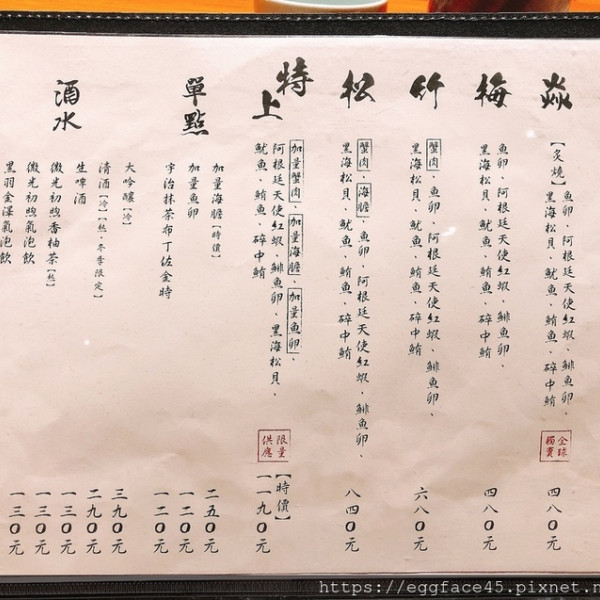 焱
【炙燒】魚卵、阿根廷天使紅蝦、鯡魚卵、
黑海松貝、魷魚、鮪魚、碎中鮪
全球獨賣
四八0元
梅
魚卵、阿根廷天使紅蝦、鯡魚卵、
黑海松貝、魷魚、鮪魚、碎中鮪
四八0元
竹
蟹肉、魚卵、阿根廷天使紅蝦、鯡魚卵、
黑海松貝、魷魚、鮪魚、碎中鮪
六八0元
松
蟹肉、海膽、魚卵、阿根廷天使紅蝦、鯡魚卵、
黑海松貝、魷魚、鮪魚、碎中鮪
八四0元
特上
加量蟹肉、加量海膽、加量魚卵、
阿根廷天使紅蝦、鯡魚卵、黑海松貝、
魷魚、鮪魚、碎中鮪
限量供應
【時價】
一一九0元
單點
加量海膽【時價】
二五0元
加量魚卵
一二0元
宇治抹茶布丁佐金時
一二0元
酒水
大吟釀【冷】
三九0元
清酒【冷】【熱,冬季限定】
二九0元
生啤酒
一三0元
微光初煦香柚茶【熱】
一三0元
微光初煦氣泡飲
一三0元
黑羽金澤氣泡飲
一三0元
https://eggface45.pixnet.n